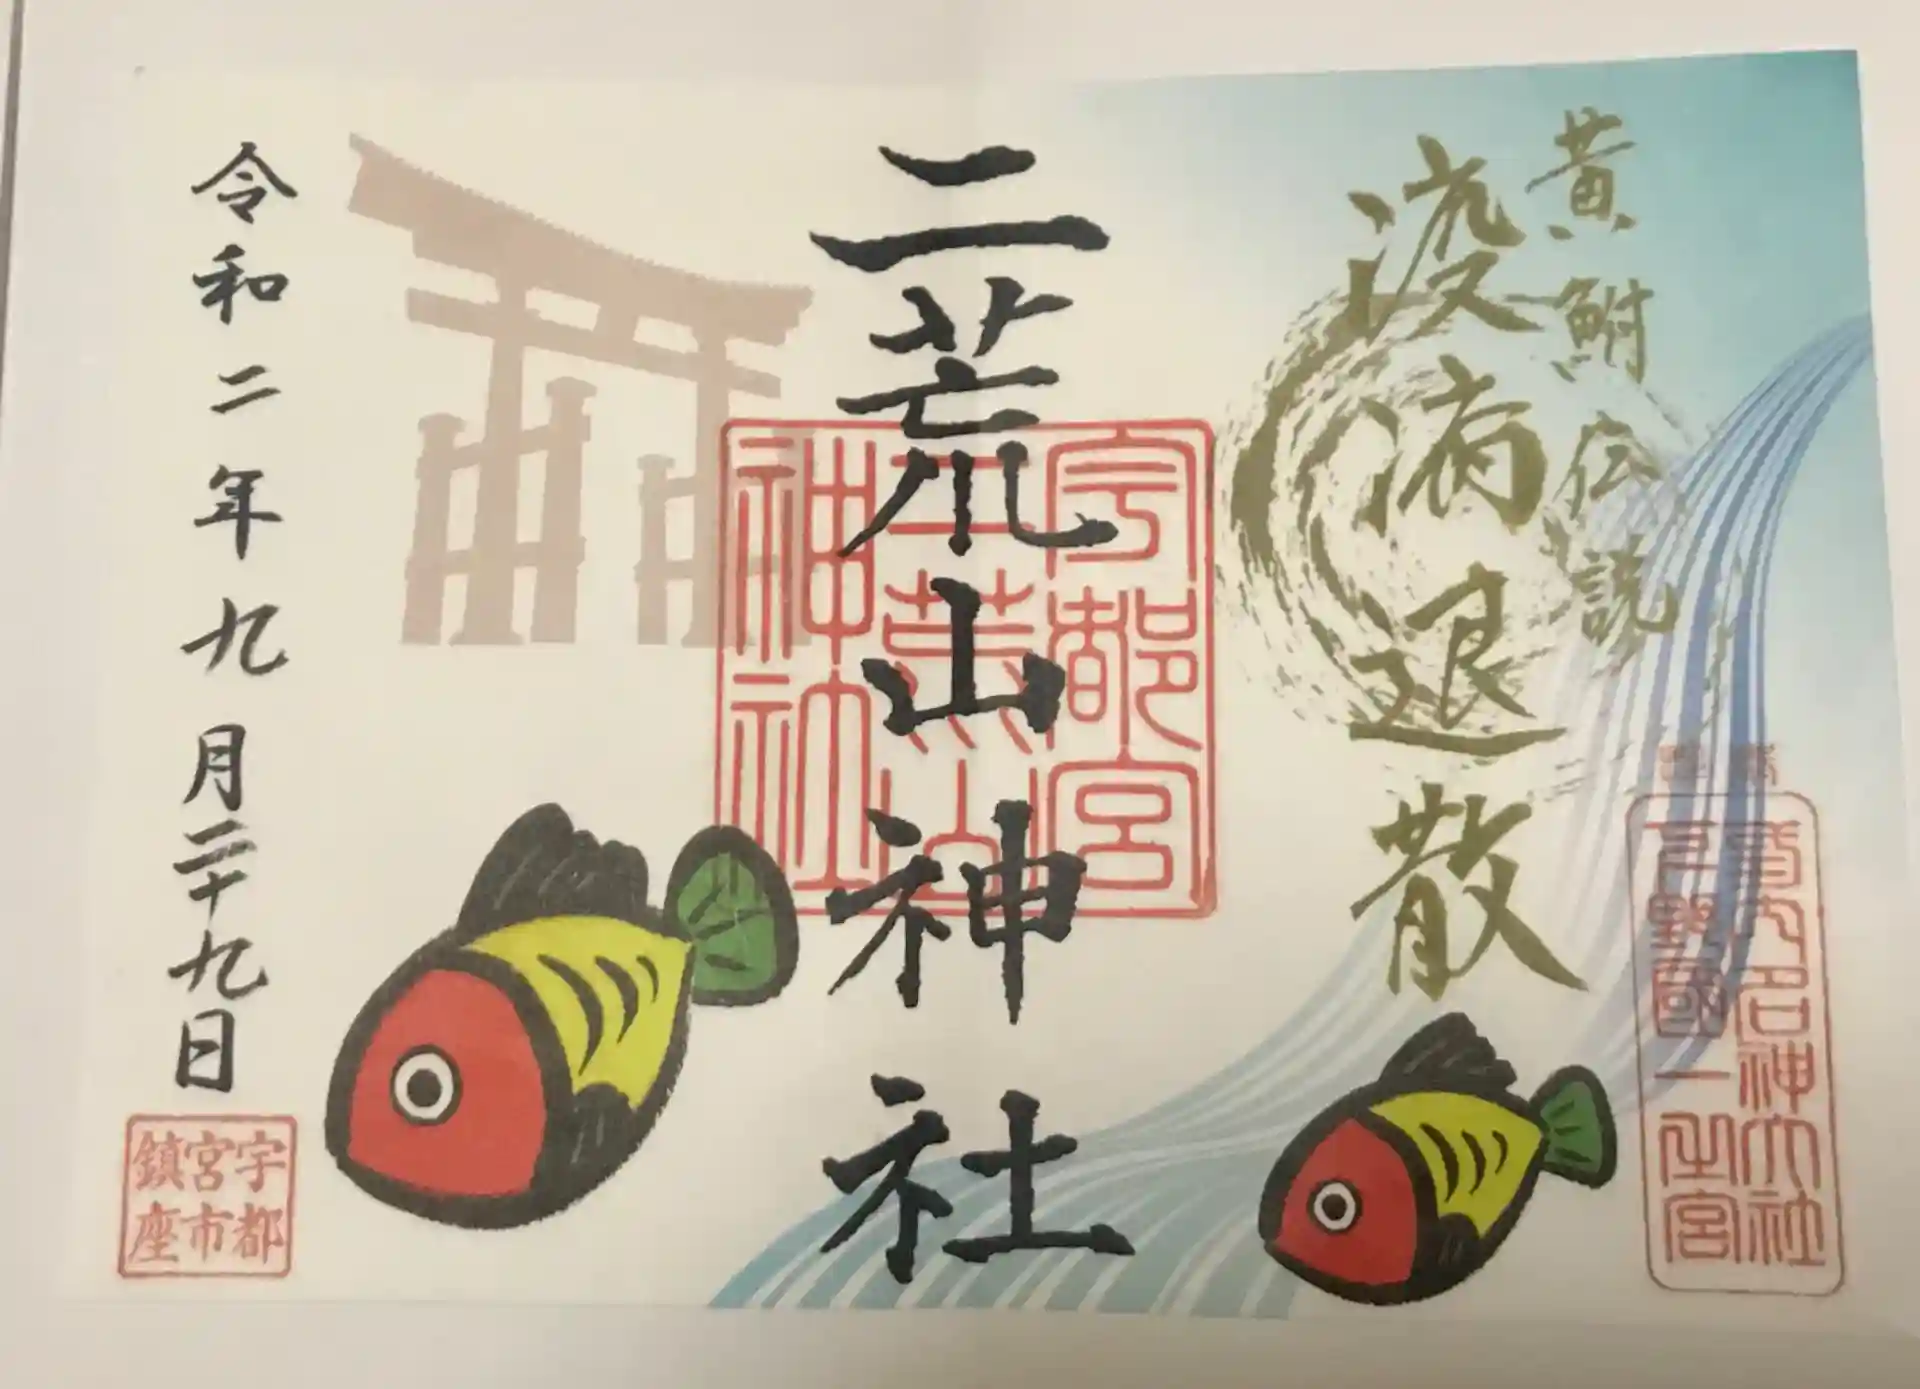 黄鮒伝説
疫病退散
式内名神大社
下野國一之宮
二荒山神社
宇都宮
二荒山
神社
令和二年九月二十九日
宇都
宮市
鎮座